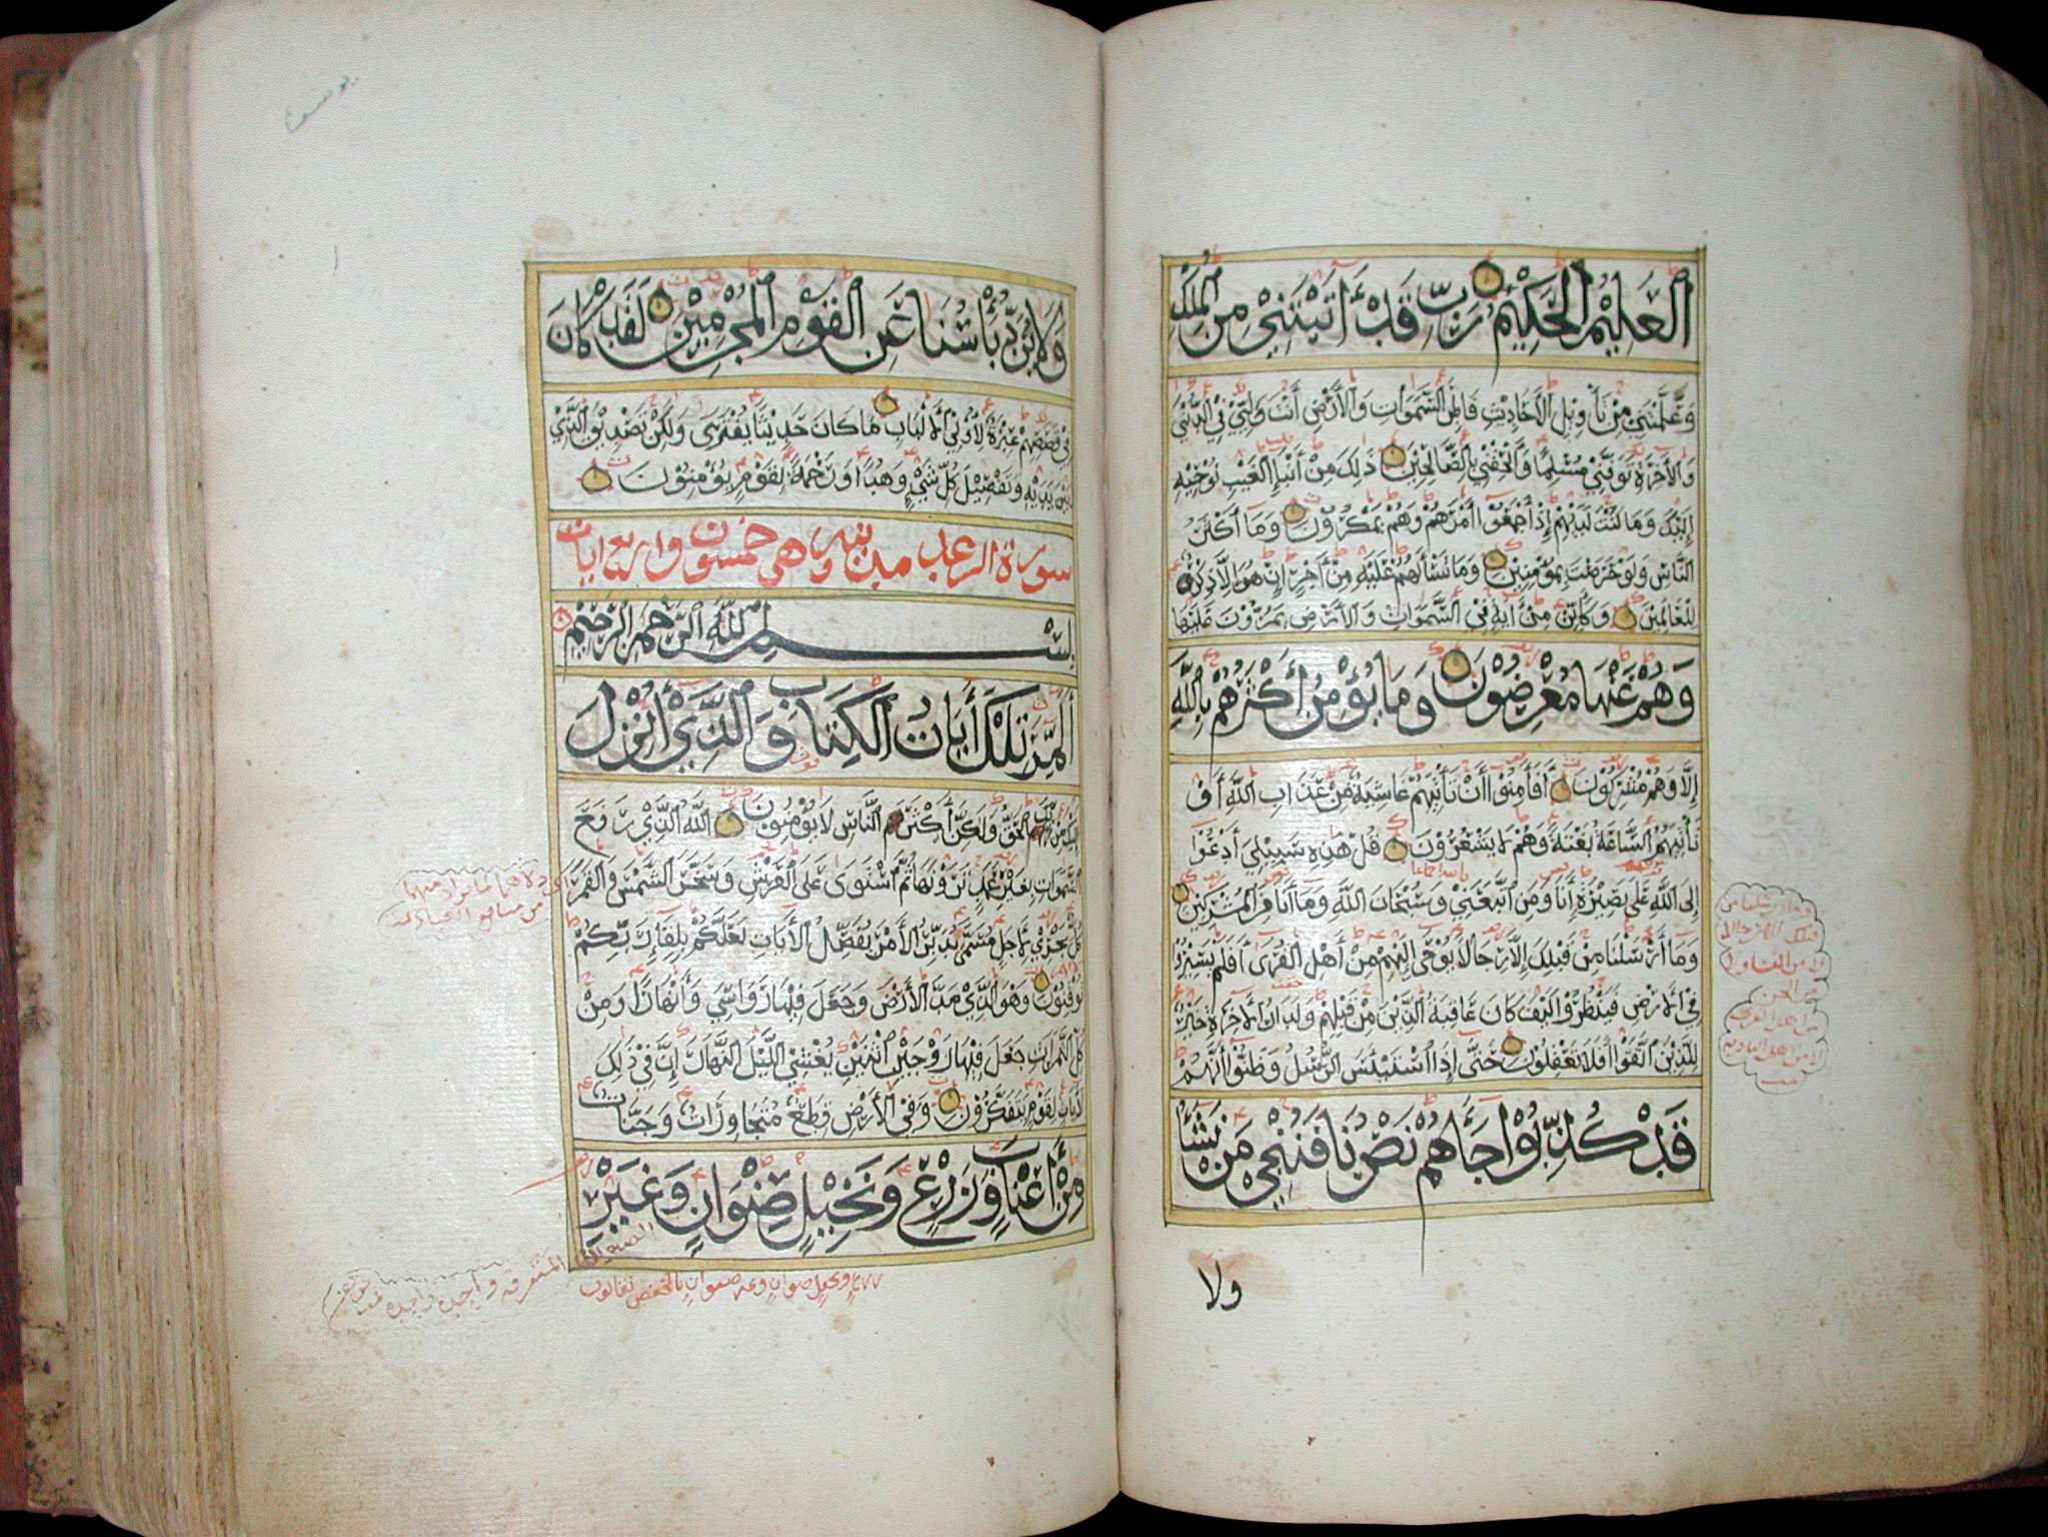 العَلِيمُ الحَكِيمُ رَبِّ قَدْ ءَاتَيْتَنِي مِنَ المُلْكِ
وَعَلَّمْتَنِي مِنْ تَأْوِيلِ الأَحَادِيثِ فَاطِرَ السَّمَوَاتِ وَالأَرْضِ أَنْتَ وَلِيِّي فِي الدُّنْيَا
وَالأَخِرَةِ تَوَفَّنِي مُسْلِمًا وَأَلْحِقْنِي بِالصَّالِحِينَ ذَلِكَ مِنْ أَنْبَاءِ الغَيْبِ نُوحِيهِ
إِلَيْكَ وَمَا كُنْتَ لَدَيْهِمْ إِذْ أَجْمَعُوا أَمْرَهُمْ وَهُمْ يَمْكُرُونَ وَمَا أَكْثَرُ
النَّاسِ وَلَوْ حَرَصْتَ بِمُؤْمِنِينَ وَمَا تَسْأَلُهُمْ عَلَيْهِ مِنْ أَجْرٍ إِنْ هُوَ إِلَّا ذِكْرٌ
لِلْعَالَمِينَ وَكَأَيِّنْ مِنْ ءَايَةٍ فِي السَّمَوَاتِ وَالأَرْضِ يَمُرُّونَ عَلَيْهَا
وَهُمْ عَنْهَا مُعْرِضُونَ وَمَا يُؤْمِنُ أَكْثَرُهُمْ بِاللَّهِ
إِلَّا وَهُمْ مُشْرِكُونَ أَفَأَمِنُوا أَنْ تَأْتِيَهُمْ غَاشِيَةٌ مِنْ عَذَابِ اللَّهِ أَوْ
تَأْتِيَهُمُ السَّاعَةُ بَغْتَةً وَهُمْ لَا يَشْعُرُونَ قُلْ هَذِهِ سَبِيلِي أَدْعُوا
إِلَى اللَّهِ عَلَى بَصِيرَةٍ أَنَا وَمَنِ اتَّبَعَنِي وَسُبْحَانَ اللَّهِ وَمَا أَنَا مِنَ المُشْرِكِينَ
وَمَا أَرْسَلْنَا مِنْ قَبْلِكَ إِلَّا رِجَالًا يُوحَى إِلَيْهِمْ مِنْ أَهْلِ القُرَى أَفَلَمْ يَسِيرُوا
فِي الأَرْضِ فَيَنْظُرُوا كَيْفَ كَانَ عَاقِبَةُ الَّذِينَ مِنْ قَبْلِهِمْ وَلَدَارُ الأَخِرَةِ خَيْرٌ
لِلَّذِينَ اتَّقَوْا أَفَلَا تَعْقِلُونَ حَتَّى إِذَا اسْتَيْئَسَ الرُّسُلُ وَظَنُّوا أَنَّهُمْ
قَدْ كُذِّبُوا جَاءَهُمْ نَصْرُنَا فَنُنْجِي مَنْ نَشَاءُ
ولا
وَلَا يُرَدُّ بَأْسُنَا عَنِ القَوْمِ المُجْرِمِينَ لَقَدْ كَانَ
فِي قَصَصِهِمْ عِبْرَةٌ لِأُولِي الأَلْبَابِ مَا كَانَ حَدِيثًا يُفْتَرَى وَلَكِنْ تَصْدِيقَ الَّذِي
بَيْنَ يَدَيْهِ وَتَفْصِيلَ كُلِّ شَيْءٍ وَهُدًا وَرَحْمَةً لِقَوْمٍ يُؤْمِنُونَ
سورة الرعد مدنيه وهي خمسون واربع ايات
بِسْمِ اللَّهِ الرَّحْمَنِ الرَّحِيمِ
المر تِلْكَ أَيَاتُ الكِتَابِ وَالَّذِي أُنْزِلَ
إِلَيْكَ مِنْ رَبِّكَ الحَقُّ وَلَكِنَّ أَكْثَرَ النَّاسِ لَا يُؤْمِنُونَ اللَّهُ الَّذِي رَفَعَ
السَّمَوَاتِ بِغَيْرِ عَمَدٍ تَرَوْنَهَا ثُمَّ اسْتَوَى عَلَى العَرْشِ وَسَخَّرَ الشَّمْسَ وَالقَمَرَ
كُلٌّ يَجْرِي لِأَجَلٍ مُسَمًّى يُدَبِّرُ الأَمْرَ يُفَصِّلُ الأَيَاتِ لَعَلَّكُمْ بِلِقَاءِ رَبِّكُمْ
تُوقِنُونَ وَهُوَ الَّذِي مَدَّ الأَرْضَ وَجَعَلَ فِيهَا رَوَاسِيَ وَأَنْهَارًا وَمِنْ
كُلِّ الثَّمَرَاتِ جَعَلَ فِيهَا زَوْجَيْنِ اثْنَيْنِ يُغْشِي اللَّيْلَ النَّهَارَ إِنَّ فِي ذَلِكَ
لَأَيَاتٍ لِقَوْمٍ يَتَفَكَّرُونَ وَفِي الأَرْضِ قِطَعٌ مُتَجَاوِرَاتٌ وَجَنَّاتٌ
مِنْ أَعْنَابٍ وَزَرْعٍ وَنَخِيلٍ صِنْوَانٍ وَغَيْرِ